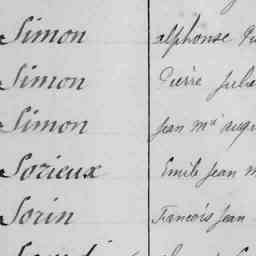 Simon alphonse
Simon Pierre Jules
Simon Jean Mie
Sorieux Emile Jean
Sorin Francois Jean